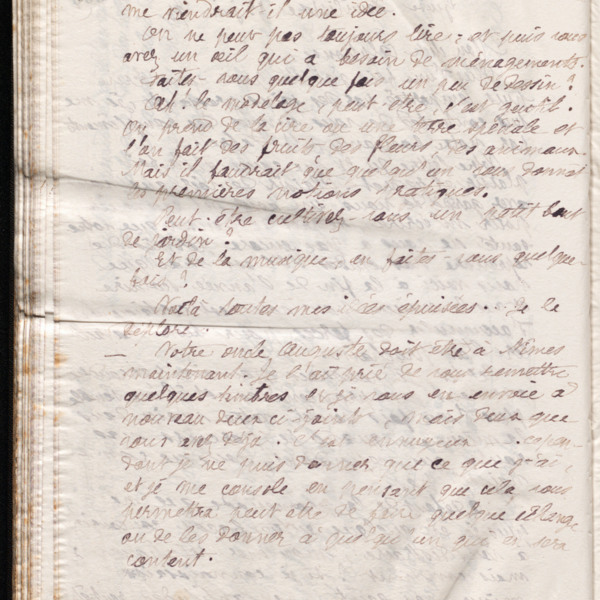 me viendrait-il une idée.
On ne peut pas toujours lire ; et puis vous
avez un œil qui a besoin de ménagements.
Faites-vous quelque fois un peu de dessin ?
Ah ! le modelage, peut-être, c'est gentil.
On prend de la cire ou une terre spéciale et
l'on fait des fruits des fleurs, des animaux.
Mais il faudrait que quelqu'un vous donnât
les premières notions pratiques.
Peut-être cultivez-vous un petit bout
de jardin ?
Et de la musique, en faites-vous quelque-
fois ?
Voilà toutes mes idées épuisées. Je le
déplore.
— Votre oncle Auguste doit être à Nîmes
maintenant. Je l'ai prié de vous remettre
quelques timbres et je vous en envoie à
nouveau deux ci-joints, mais ceux que
vous avez déjà. C'est ennuyeux. cepen-
dant je ne puis donner que ce que j'ai,
et je me console en pensant que cela vous
permettra peut-être de faire quelque échange
ou de les donner à quelqu'un qui en sera
content.